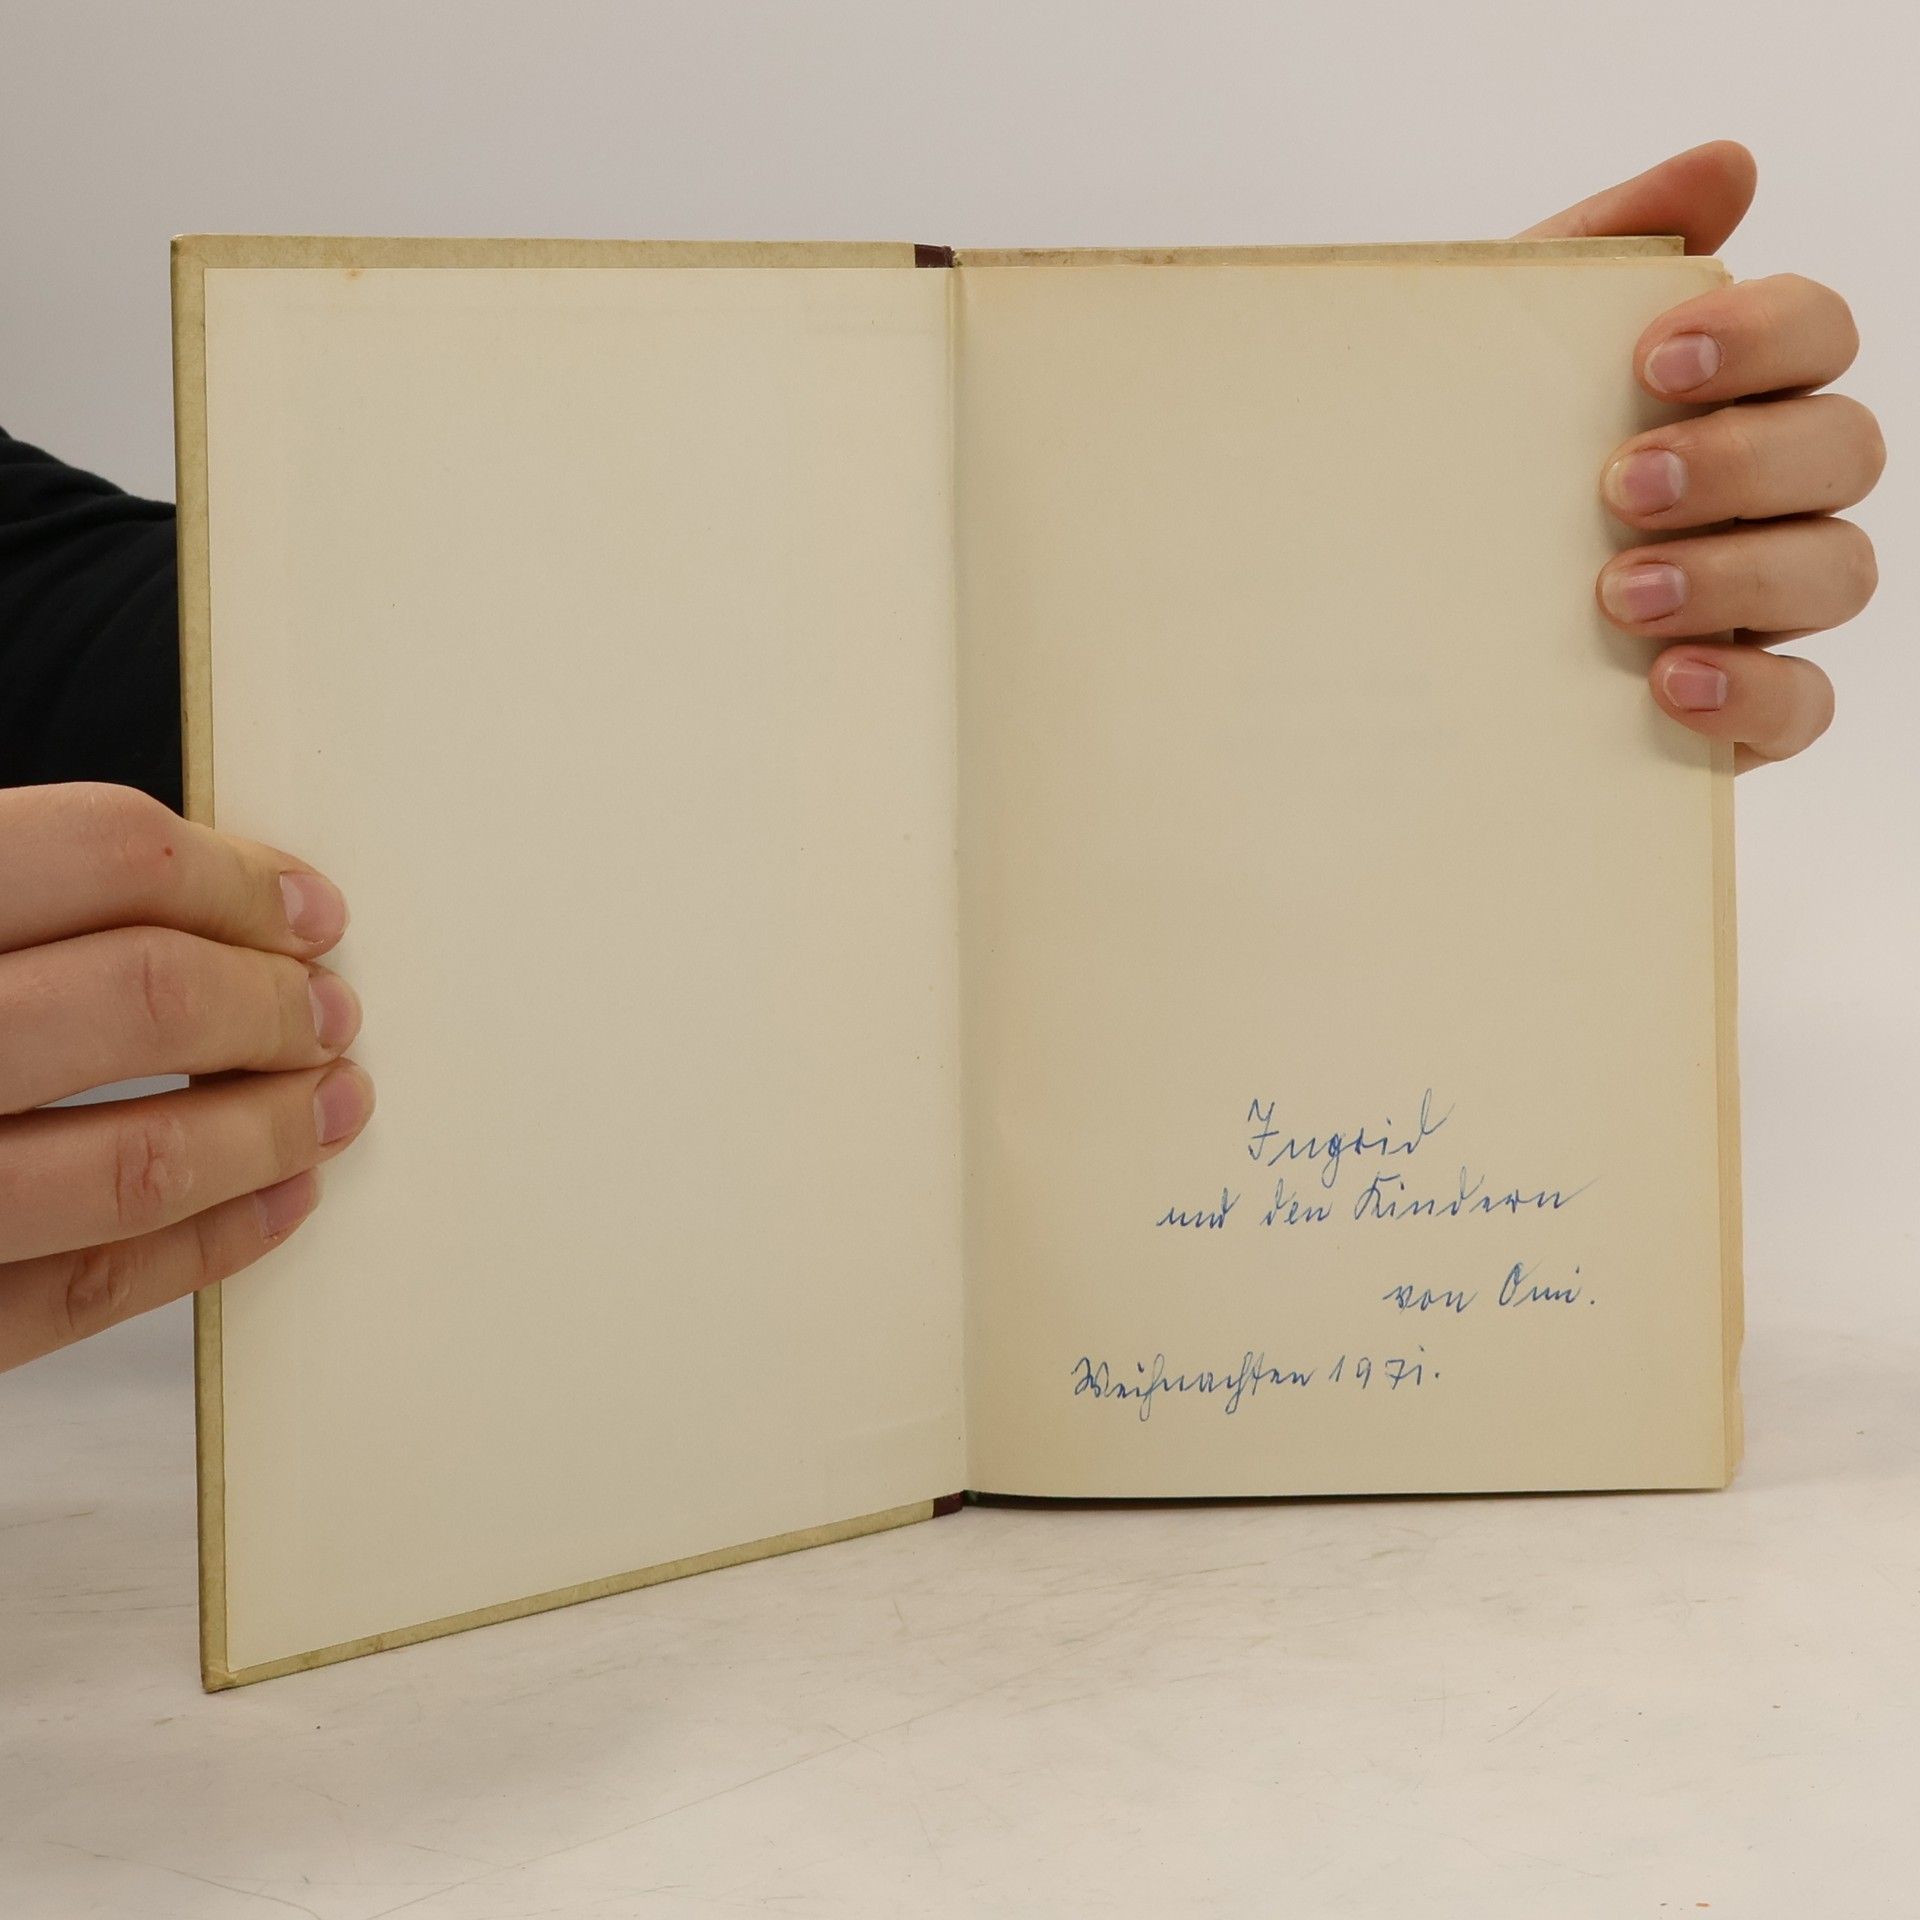 Ingrid
und den Kindern
von Omi.
Weihnachten 1971.